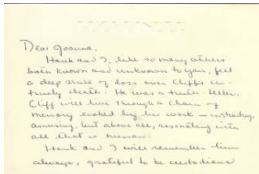 Dear Joanne,
Hank and I, like so many others
both known and unknown to you, feel
a deep sense of loss over Cliff's un-
timely death. He was a truth-teller.
Cliff will live through a chain of
memory evoked by his work —
amusing, but above all, resonating into
all that is human.
Hank and I will remember him
always, grateful to be custodians